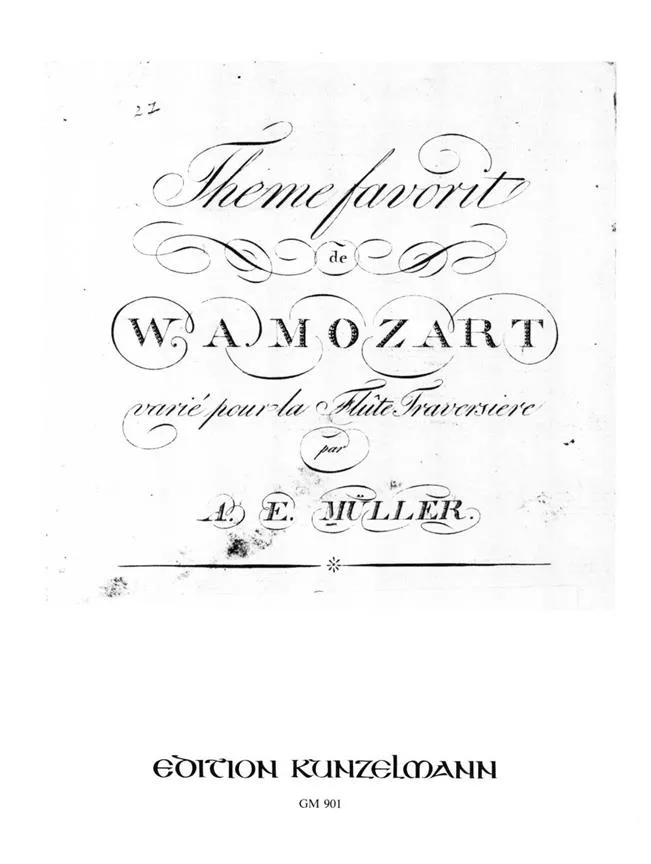 27
Thême favorit
de
W. A. MOZART
varié pour la Flûte Traversiere
par
A. E. MÜLLER.
EDITION KUNZELMANN
GM 901